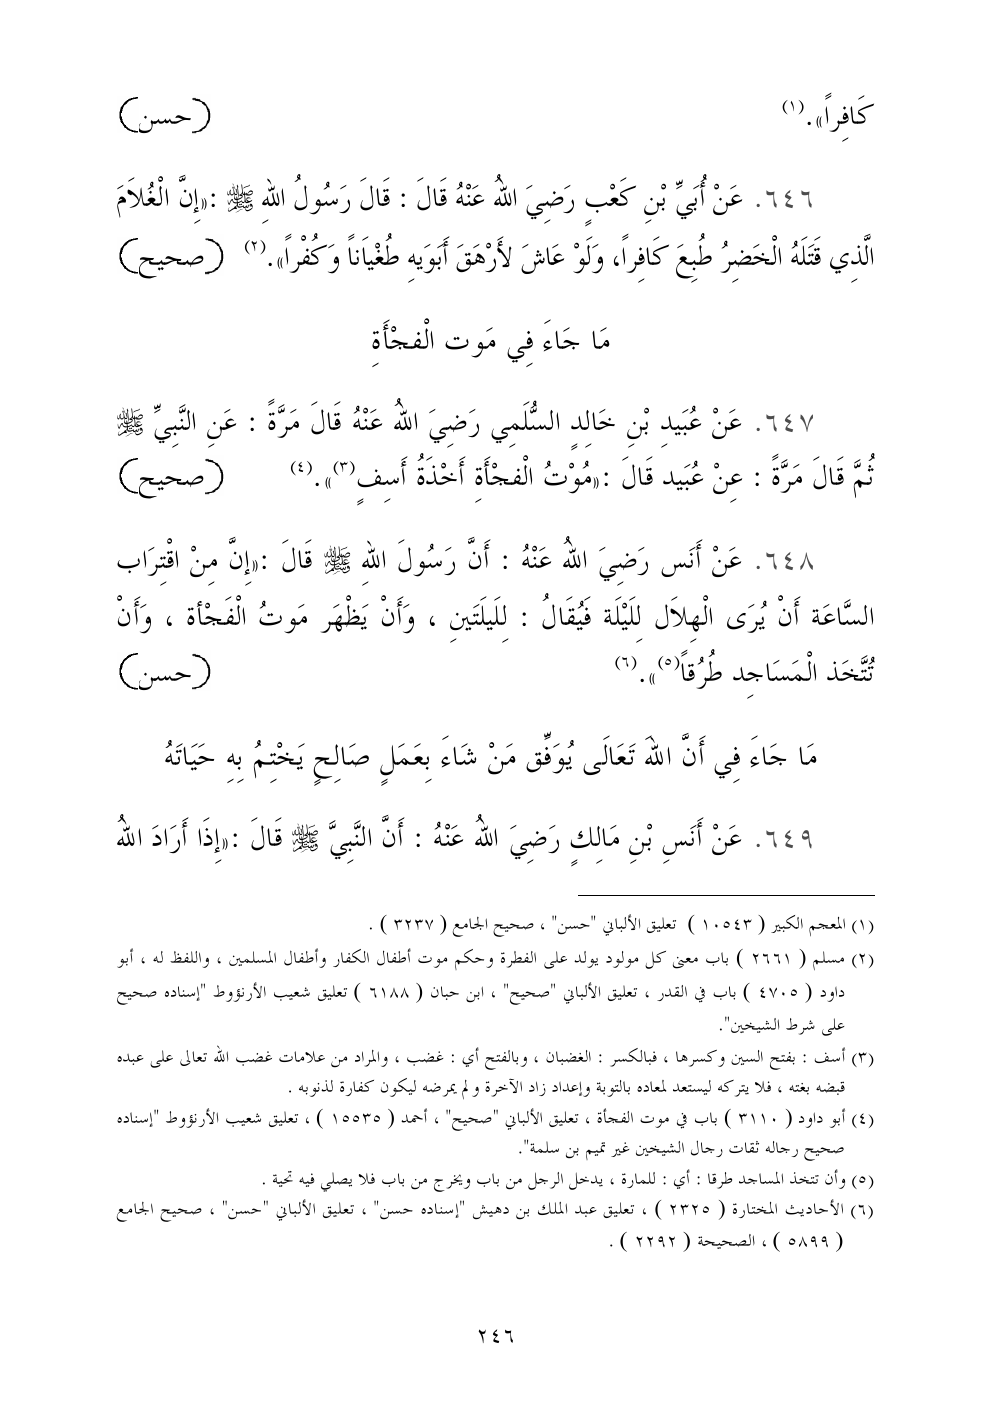 كَافِراً». (١) (حسن)
٦٤٦. عَنْ أُبَيِّ بْنِ كَعْبٍ رَضِيَ اللهُ عَنْهُ قَالَ : قَالَ رَسُولُ اللهِ ﷺ :«إِنَّ الْغُلاَمَ
الَّذِي قَتَلَهُ الْخَضِرُ طُبِعَ كَافِراً، وَلَوْ عَاشَ لأَرْهَقَ أَبَوَيهِ طُغْيَاناً وَكُفْراً». (٢) (صحيح)
مَا جَاءَ فِي مَوت الْفجْأَةِ
٦٤٧. عَنْ عُبَيدِ بْنِ خَالِدٍ السُّلَمِي رَضِيَ اللهُ عَنْهُ قَالَ مَرَّةً : عَنِ النَّبِيِّ ﷺ
ثُمَّ قَالَ مَرَّةً : عِنْ عُبَيد قَالَ :«مُوْتُ الْفجْأَةِ أَخْذَةُ أَسِفٍ(٣)». (٤) (صحيح)
٦٤٨. عَنْ أَنَس رَضِيَ اللهُ عَنْهُ : أَنَّ رَسُولَ اللهِ ﷺ قَالَ :«إِنَّ مِنْ اقْتِرَاب
السَّاعَة أَنْ يُرَى الْهِلاَل لِلَيْلَة فَيُقَالُ : لِلَيلَتَينِ ، وَأَنْ يَظْهَر مَوتُ الْفَجْأة ، وَأَنْ
تُتَّخَذ الْمَسَاجِد طُرُقاً(٥)». (٦) (حسن)
مَا جَاءَ فِي أَنَّ اللهَ تَعَالَى يُوَفِّق مَنْ شَاءَ بِعَمَلٍ صَالِحٍ يَخْتِمُ بِهِ حَيَاتَهُ
٦٤٩. عَنْ أَنَسِ بْنِ مَالِكٍ رَضِيَ اللهُ عَنْهُ : أَنَّ النَّبِيَّ ﷺ قَالَ :«إِذَا أَرَادَ اللهُ
(١) المعجم الكبير ( ١٠٥٤٣ ) تعليق الألباني "حسن" ، صحيح الجامع ( ٣٢٣٧ ) .
(٢) مسلم ( ٢٦٦١ ) باب معنى كل مولود يولد على الفطرة وحكم موت أطفال الكفار وأطفال المسلمين ، واللفظ له ، أبو
داود ( ٤٧٠٥ ) باب في القدر ، تعليق الألباني "صحيح" ، ابن حبان ( ٦١٨٨ ) تعليق شعيب الأرنؤوط "إسناده صحيح
على شرط الشيخين".
(٣) أسف : بفتح السين وكسرها ، فبالكسر : الغضبان ، وبالفتح أي : غضب ، والمراد من علامات غضب الله تعالى على عبده
قبضه بغته ، فلا يتركه ليستعد لمعاده بالتوبة وإعداد زاد الآخرة و لم يمرضه ليكون كفارة لذنوبه .
(٤) أبو داود ( ٣١١٠ ) باب في موت الفجأة ، تعليق الألباني "صحيح" ، أحمد ( ١٥٥٣٥ ) ، تعليق شعيب الأرنؤوط "إسناده
صحيح رجاله ثقات رجال الشيخين غير تميم بن سلمة".
(٥) وأن تتخذ المساجد طرقا : أي : للمارة ، يدخل الرجل من باب ويخرج من باب فلا يصلي فيه تحية .
(٦) الأحاديث المختارة ( ٢٣٢٥ ) ، تعليق عبد الملك بن دهيش "إسناده حسن" ، تعليق الألباني "حسن" ، صحيح الجامع
( ٥٨٩٩ ) ، الصحيحة ( ٢٢٩٢ ) .
٢٤٦